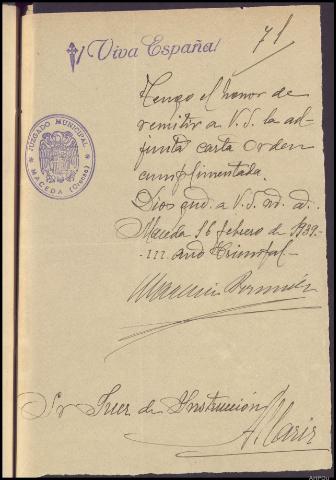 ¡Viva España!
71
JUZGADO MUNICIPAL
MACEDA (Orense)
Tengo el honor de
remitir a V.S. la ad-
junta carta orden
cumplimentada.
Dios gud. a V.S. m. a.
Maceda 16 febrero de 1939.-
-III año Triunfal.-
Sr Juez de Instrucción
Allariz
AHPOU